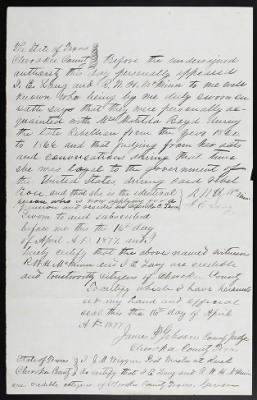 The State of Texas
Cherokee County Before the undersigned
authority this day personally appeared
J. E. Long and R. H. H. McKinn to me well
known who being by me duly sworn on
oath says that they were personally ac-
quainted with Mrs Matilda Boyd during
the late Rebellion from the year 1860
to 1866 and that judging from her acts
and conversations during that time
she was loyal to the Government of
the United States during said
and that she is the identical
person who is now applying for a
pension and resides in
Sworn to and subscribed
before me this the 14th day
of April A.D. 1877. and I
hereby certify that the above named witnesses
R. H. H. McKinn and J. E. Long are creditable
and trustworthy citizens of Cherokee County
To certify which I have hereunto
set my hand and official
seal this the 14th day of April
A.D. 1877.
James P. Gibson County Judge
Cherokee County
State of Texas I J. M. Wiggins Post Master at Rusk
Cherokee County do certify that J. E. Long and R. H. H. McKinn
are credible citizens of Cherokee County Texas.